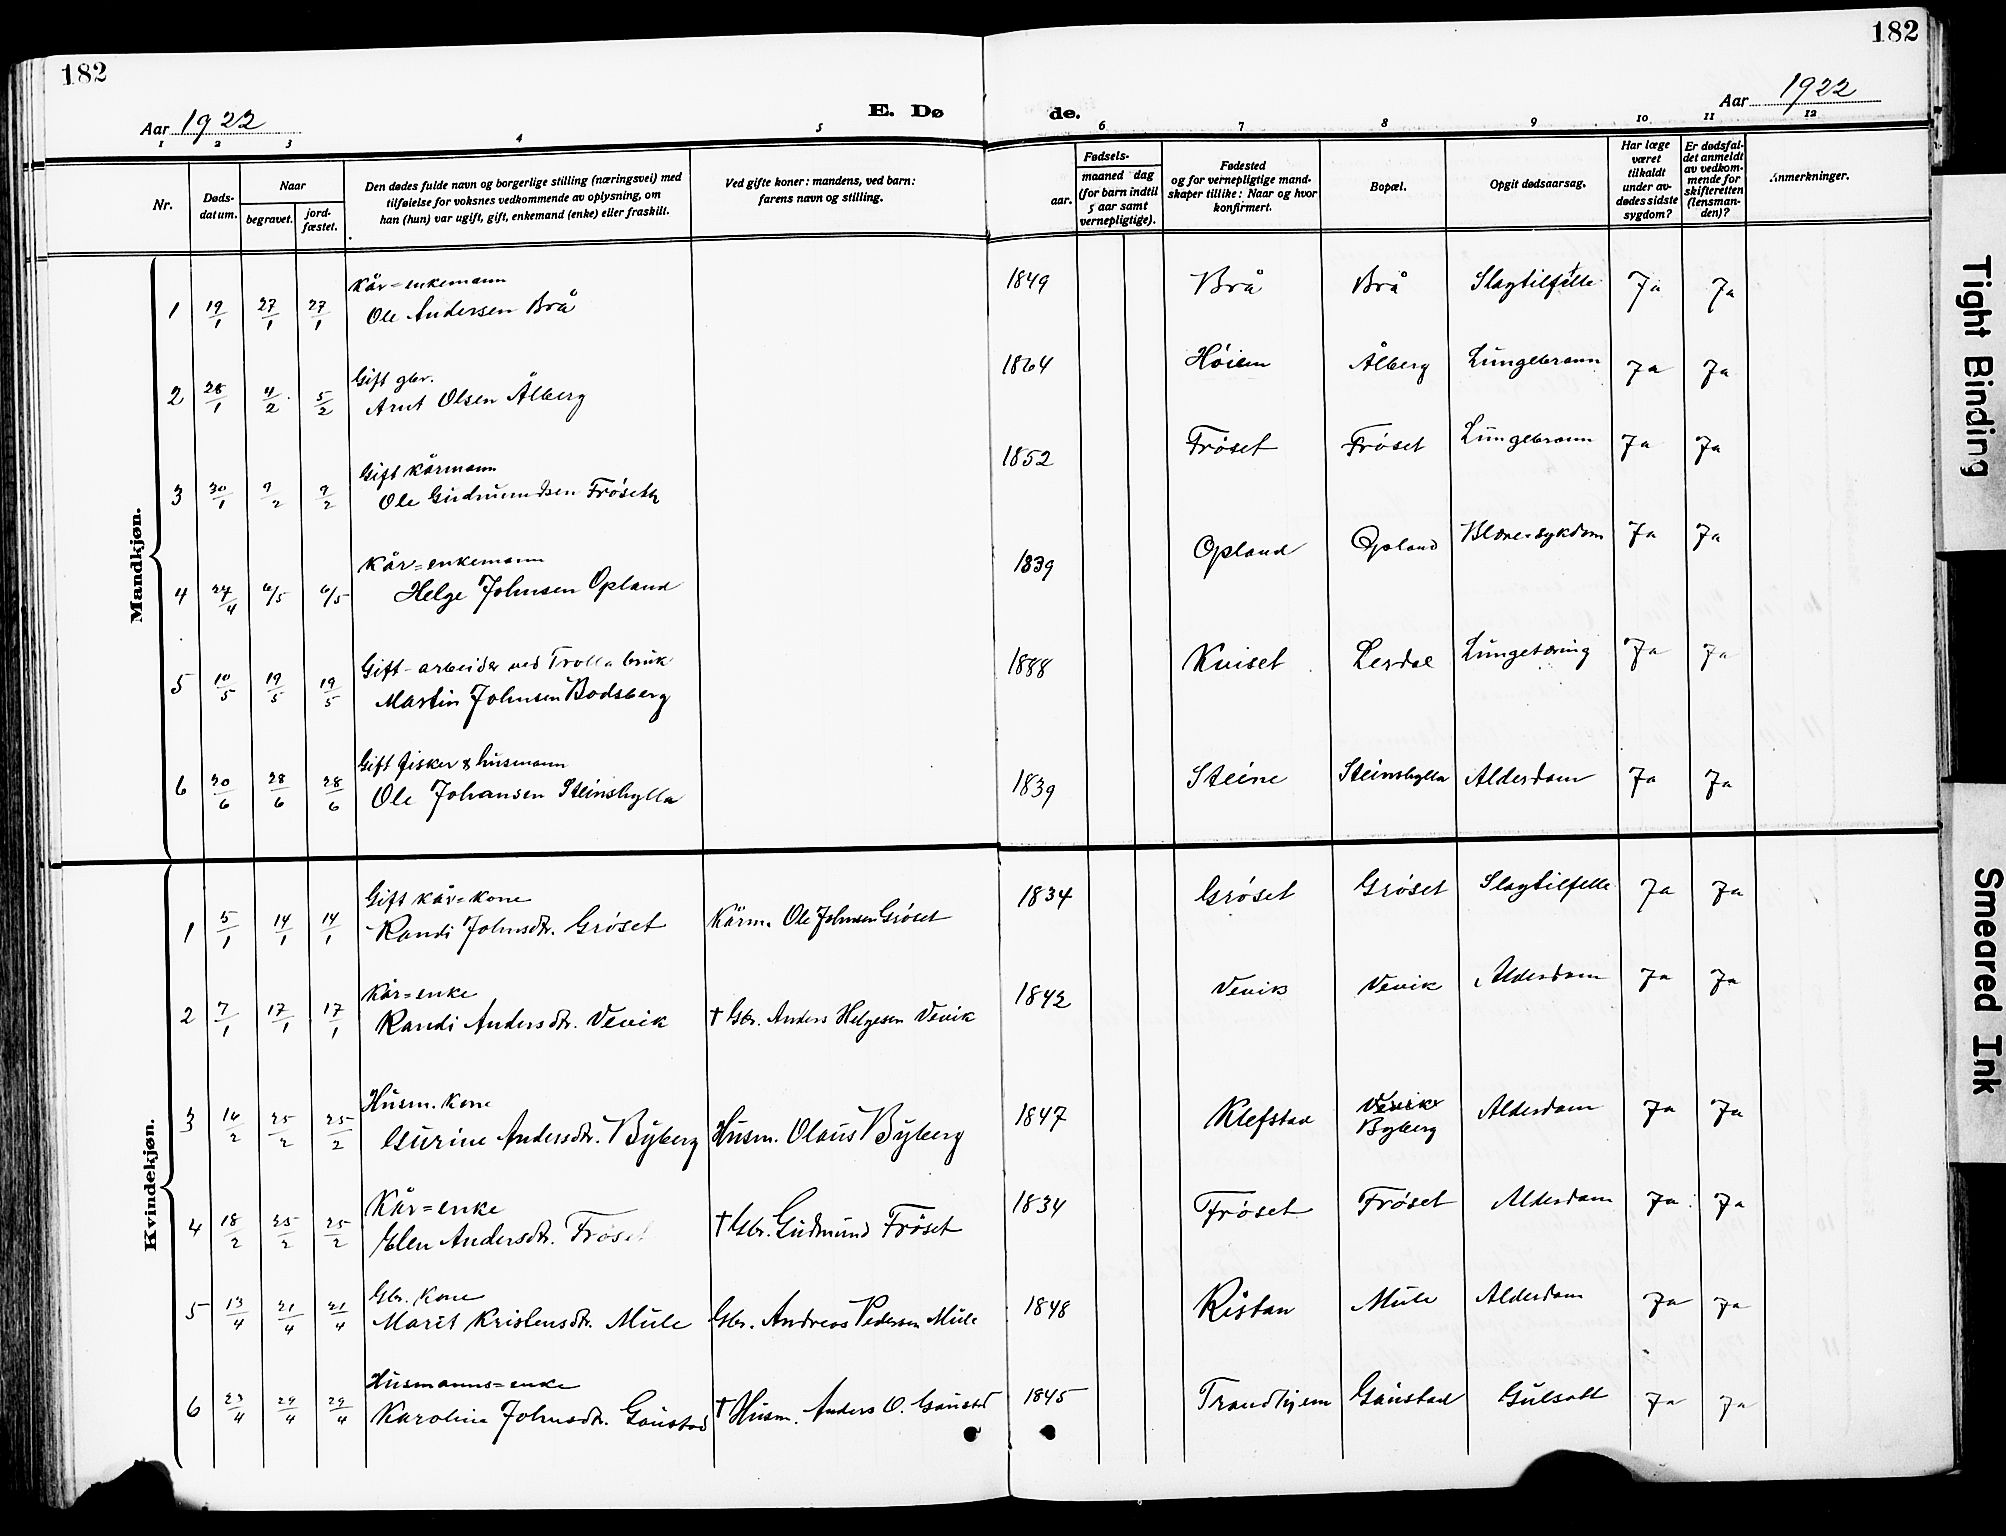 182
182
Aar 1922
E. Dø
de.
Aar 1922
1 2 3 4 5 6 7 8 9 10 11 12
Nr.
Døds-
datum.
Naar
begravet.
jord-
fæstet.
Den dødes fulde navn og borgerlige stilling (næringsvei) med
tilføielse for voksnes vedkommende av oplysning, om
han (hun) var ugift, gift, enkemand (enke) eller fraskilt.
Ved gifte koner: mandens, ved barn:
farens navn og stilling.
Fødsels-
aar.
maaned dag
(for barn indtil
5 aar samt
vernepligtige).
Fødested
og for vernepligtige mand-
skaper tillike: Naar og hvor
konfirmert.
Bopæl.
Opgit dødsaarsag.
Har læge
været
tilkaldt
under av-
dødes sidste
sygdom?
Er dødsfal-
det anmeldt
av vedkom-
mende for
skifteretten
(lensman-
den)?
Anmerkninger.
Mandkjøn.
Kår=enkemann
1 19/1 27/1 27/1 Ole Andersen Brå 1849 Brå Brå Slagtilfelle Ja Ja
Gift gbr.
2 28/1 4/2 5/2 Arnt Olsen Ålberg 1864 Höilen Ålberg Lungebrann Ja Ja
Gift kårmann
3 30/1 9/2 9/2 Ole Gudmundsen Fröseth 1852 Fröset Fröset Lungebrann Ja Ja
Kår=enkemann
4 24/4 6/5 6/5 Helge Johnsen Opland 1839 Opland Opland Blæresykdom Ja Ja
Gift - arbeider ved Trolla bruk
5 10/5 19/5 19/5 Martin Johnsen Bodsberg 1888 Kviset Lerdal Lungetæring Ja Ja
Gift fisker & husmann
6 20/6 28/6 28/6 Ole Johansen Steinshylla 1839 Steine Steinshylla Alderdom Ja Ja
Kvindekjøn.
Gift kår=kone
1 5/1 14/1 14/1 Randi Johnsdtr. Gröset Kårm. Ole Johnsen Gröset 1834 Gröset Gröset Slagtilfelle Ja Ja
Kår=enke
2 7/1 17/1 17/1 Randi Andersdtr. Vevik † Gbr. Anders Helgesen Vevik 1842 Vevik Vevik Alderdom Ja Ja
Husm. kone
3 16/2 25/2 25/2 Gurine Andersdtr. Byberg Husm. Olaus Byberg 1847 Klefstad Vevik
Byberg Alderdom Ja Ja
Kår=enke
4 18/2 25/2 25/2 Elen Andersdtr. Fröset † Gbr. Gudmund Fröset 1834 Fröset Fröset Alderdom Ja Ja
Gbr. kone
5 13/4 21/4 21/4 Marit Kristensdtr. Mule Gbr. Andreas Pedersen Mule 1848 Ristan Mule Alderdom Ja Ja
Husmanns=enke
6 23/4 29/4 29/4 Karoline Johnsdtr. Gaustad † Husm. Anders O. Gaustad 1845 Trondhjem Gaustad Gulsott Ja Ja
Tight Binding
Smeared Ink